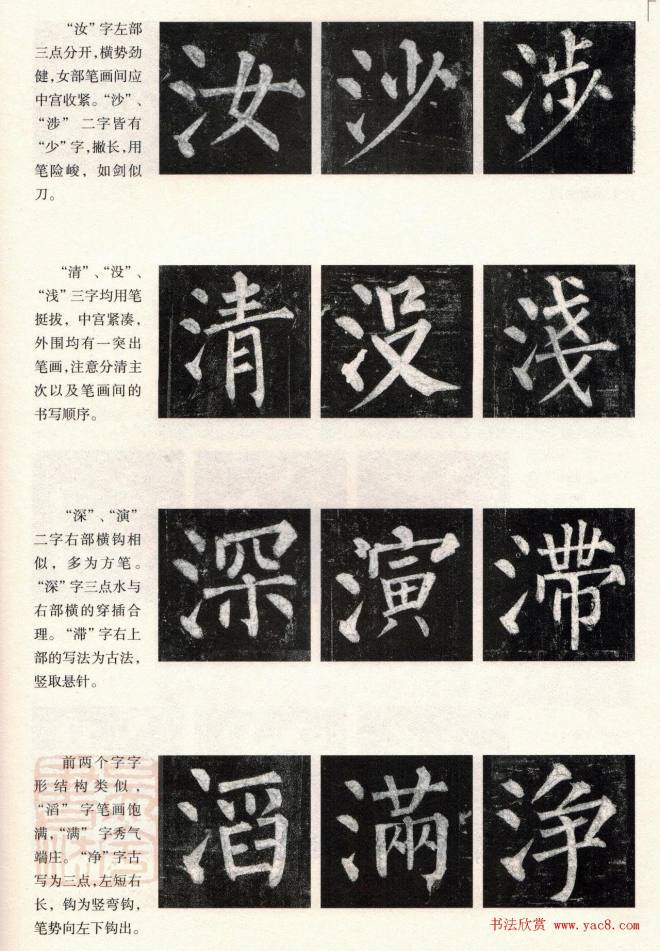 “汝”字左部
三点分开，横势劲
健，女部笔画间应
中宫收紧。“沙”、
“涉” 二字皆有
“少”字，撇长，用
笔险峻，如剑似
刀。
汝 沙 涉
“清”、“没”、
“浅”三字均用笔
挺拔，中宫紧凑，
外围均有一突出
笔画，注意分清主
次以及笔画间的
书写顺序。
清 没 淺
“深”、“演”
二字右部横钩相
似，多为方笔。
“深”字三点水与
右部横的穿插合
理。“滞”字右上
部的写法为古法，
竖取悬针。
深 演 滯
前两个字字
形结构类似，
“滔” 字笔画饱
满，“满” 字秀气
端庄。“净”字古
写为三点，左短右
长，钩为竖弯钩，
笔势向左下钩出。
滔 滿 淨
书法欣赏 www.yac8.com